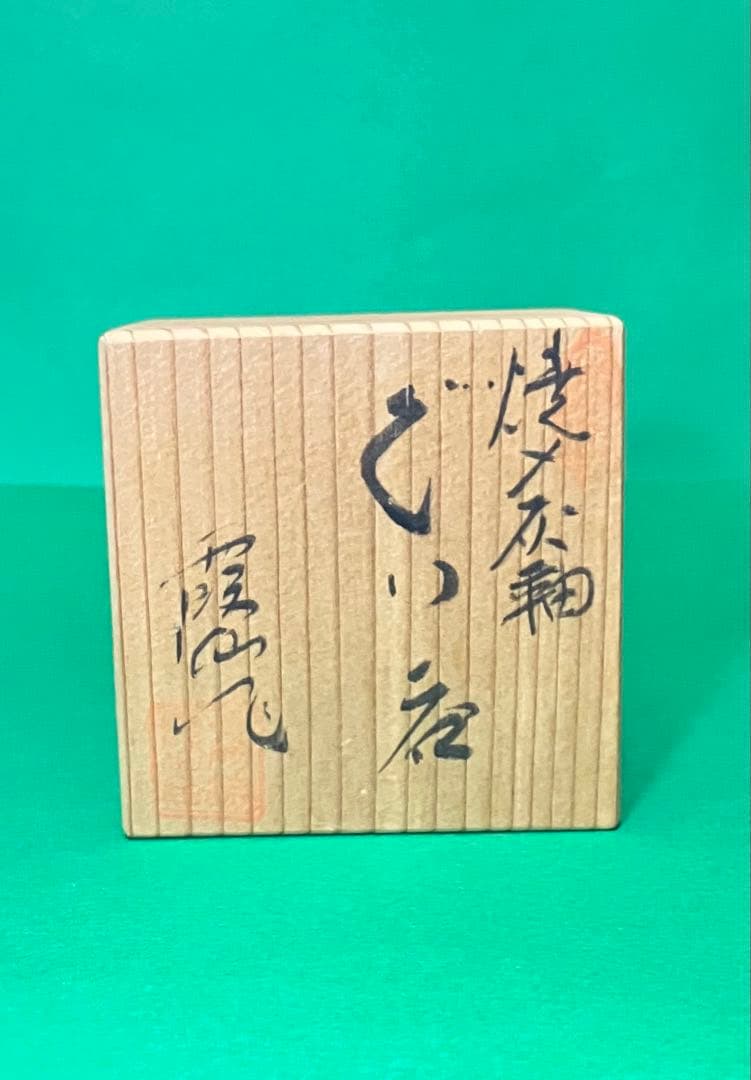 焼〆灰釉
ぐい呑
霞仙